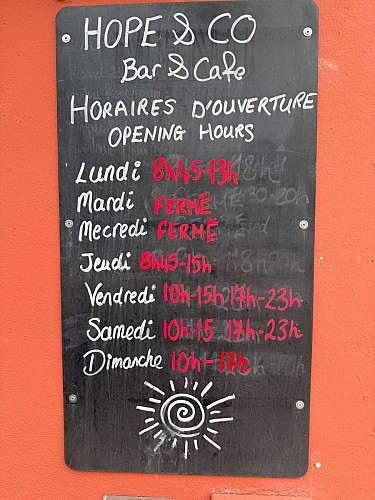 HOPE & CO
Bar & Cafe
HORAIRES D'OUVERTURE
OPENING HOURS
Lundi 8h45-13h
Mardi FERMÉ
Mecredi FERMÉ
Jeudi 8h45-15h
Vendredi 10h-15h 17h-23h
Samedi 10h-15 17h-23h
Dimanche 10h-17h